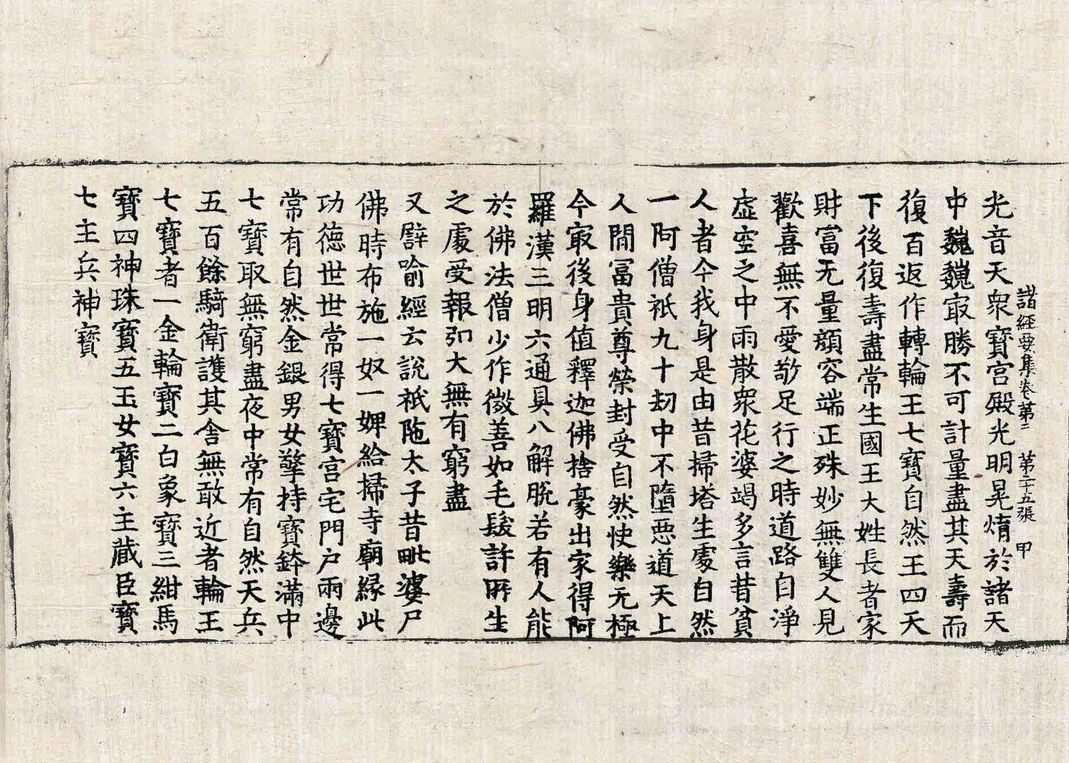 諸經要集卷第三　第二十五張　甲
光音天衆寶宮殿光明晃煟於諸天
中巍巍㝡勝不可計量盡其天壽而
復百返作轉輪王七寶自然王四天
下後復壽盡常生國王大姓長者家
財冨无量顔容端正殊妙無雙人見
歡喜無不愛敬欲行之時道路自淨
虛空之中雨散衆花婆竭多言昔貧
人者今我身是由昔掃塔生處自然
一阿僧祇九十劫中不墮惡道天上
人間冨貴尊榮封受自然快樂无極
今㝡後身值釋迦佛捨豪出家得阿
羅漢三明六通具八解脫若有人能
於佛法僧少作微善如毛髮許所生
之處受報弘大無有窮盡
又譬喻經云說祇陁太子昔毗婆尸
佛時布施一奴一婢給掃寺廟緣此
功德世世常得七寶宮宅門戶兩邊
常有自然金銀男女擎持寶鉢滿中
七寶取無窮盡夜中常有自然天兵
五百餘騎衛護其舍無敢近者輪王
七寶者一金輪寶二白象寶三紺馬
寶四神珠寶五玉女寶六主藏臣寶
七主兵神寶